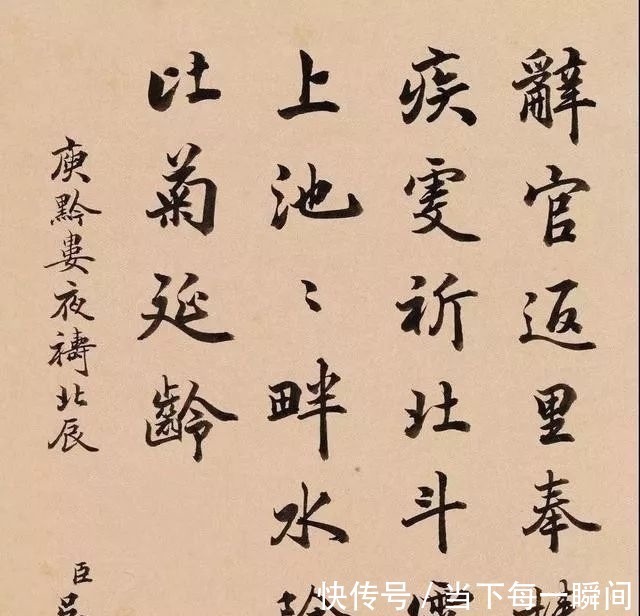 辭官返里奉
疾虔祈北斗
上池〻畔水
比菊延齡
庾黔婁夜禱北辰
臣
快传号 / 当下每一瞬间